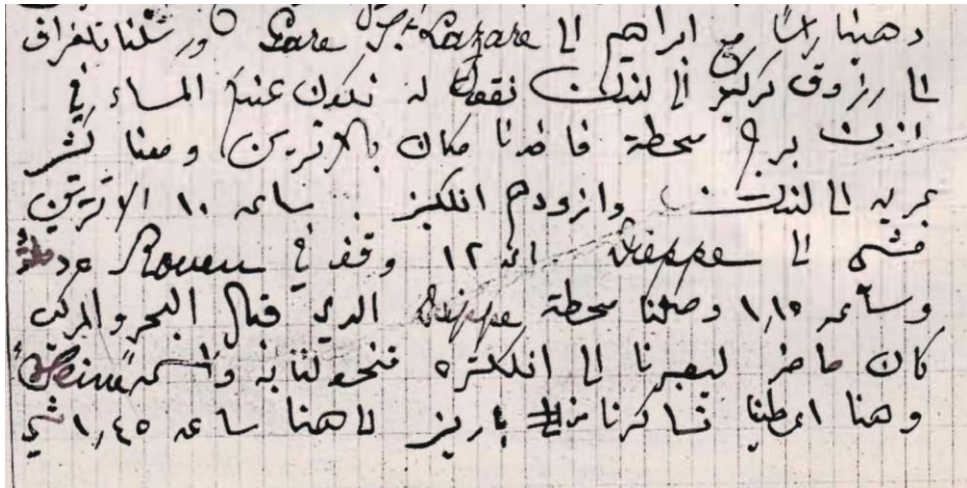 دهبنا راسًا مع ابراهيم الى Gare St Lazare ورسلنا تلغراف
الى رزوق كركجي الى لندن نقول له نكون عندكم المساء في
محطة فاخذنا مكان بالاترين ومعنا كثير
بحريه الى لندن وازودهم انلكيز . ساعه ١٠ الاترين
مشى الى Dieppe الـ ١٢ وقف في Rouen
وساعه ١٫١٥ وصلنا محطة Dieppe الذي قبال البحر والمركب
كان حاضر ليعبرنا الى انكلتره فتحولنا به واسمه "Seine"
وهنا اعطينا تساكرنا من باريز لاهنا ساعه ١٫٤٥ مشى